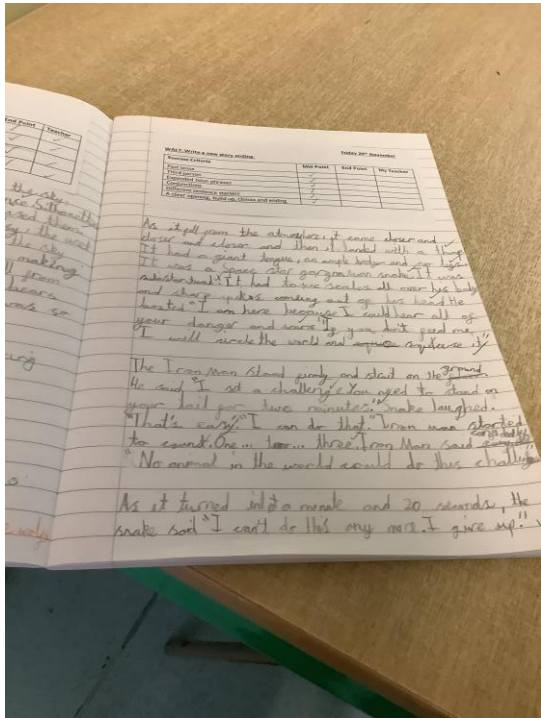 End Point
Teacher
the sky
making
from
was so
WALT: Write a new story ending.
Friday 20th November
Success Criteria
Mid Point
End Point
My Teacher
Past tense
Third person
Expanded noun phrases
Conjunctions
Different sentence starters
A clear opening, build up, climax and ending
As it fell from the atmosphere, it came closer and
closer and closer and then it landed with a
It had a giant tongue, an ample body and
It was a space star gargogulan snake. It was
substantual. It had to be scales all over his body
and sharp spikes coming out of his head. He
"I am here because I could hear all of
your danger and wars. If you don't feed me,
I will circle the world and squeeze it"
The Iron Man stood firmly and strait on the ground.
He said "I set a challenge. You need to stand on
your tail for two minutes." Snake laughed.
"That's easy" "I can do that." Iron man started
to count. One... two... three. Iron Man said confidently
"No animal in the world could do this challenge
As it turned into a minute and 20 seconds, the
snake said "I can't do this any more. I give up."